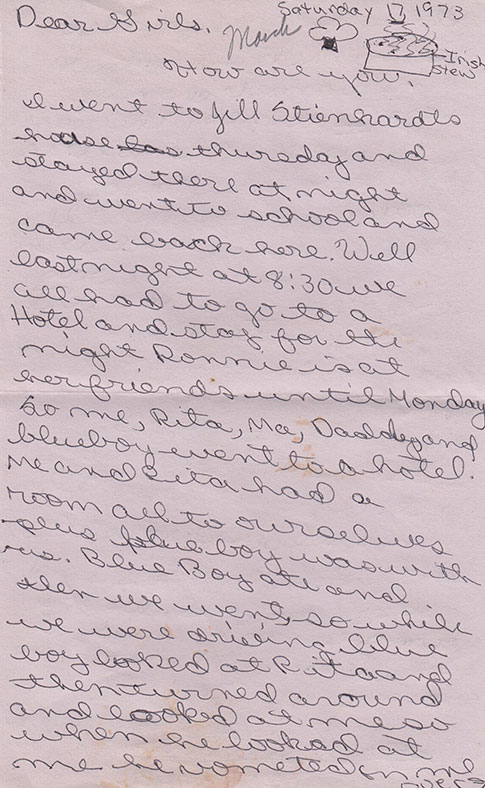 Saturday 17 1973
Dear Girls,
March
Irish
stew
How are you.
I went to Jill Stienhardts
house thursday and
stayed there at night
and went to school and
came back here. Well
last night at 8:30 we
all had to go to a
Hotel and stay for the
night Ronnie is at
her friends until Monday
So me, Rita, Ma, Daddy and
blueboy went to a hotel.
Me and Rita had a
room all to ourselves
plus blue boy was with
us. Blue Boy ate and
then we went, so while
we were driving blue
boy looked at Rita and
then turned around
and looked at me so
when he looked at
me he vometed on me
over